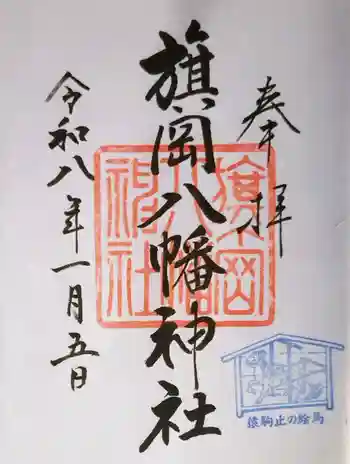 奉拝
旗岡八幡神社
令和八年一月五日
旗岡八幡神社
猿駒止の絵馬